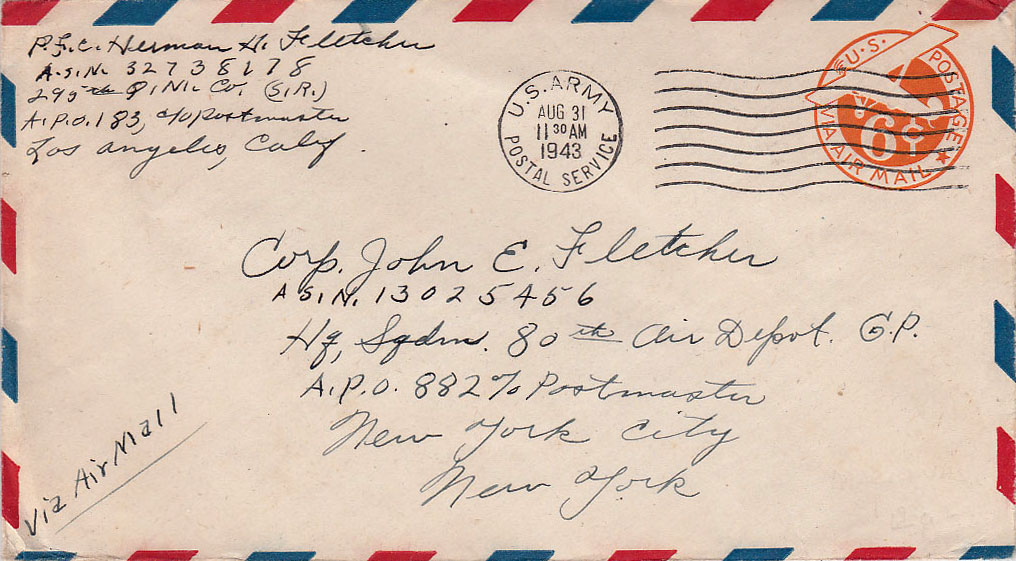 P.F.C. Herman H. Fletcher
A.S.N. 32738178
Co. (S.R.)
A.P.O. 183, c/o Postmaster
Los Angeles, Calif.
U.S. ARMY
AUG 31
11 30 AM
1943
POSTAL SERVICE
U.S. POSTAGE
6¢
VIA AIR MAIL
Corp. John E. Fletcher
A.S.N. 13025456
Hq. Sqdrn. 80th Air Depot. G.P.
A.P.O. 882 % Postmaster
New York City
New York
Via Air Mail